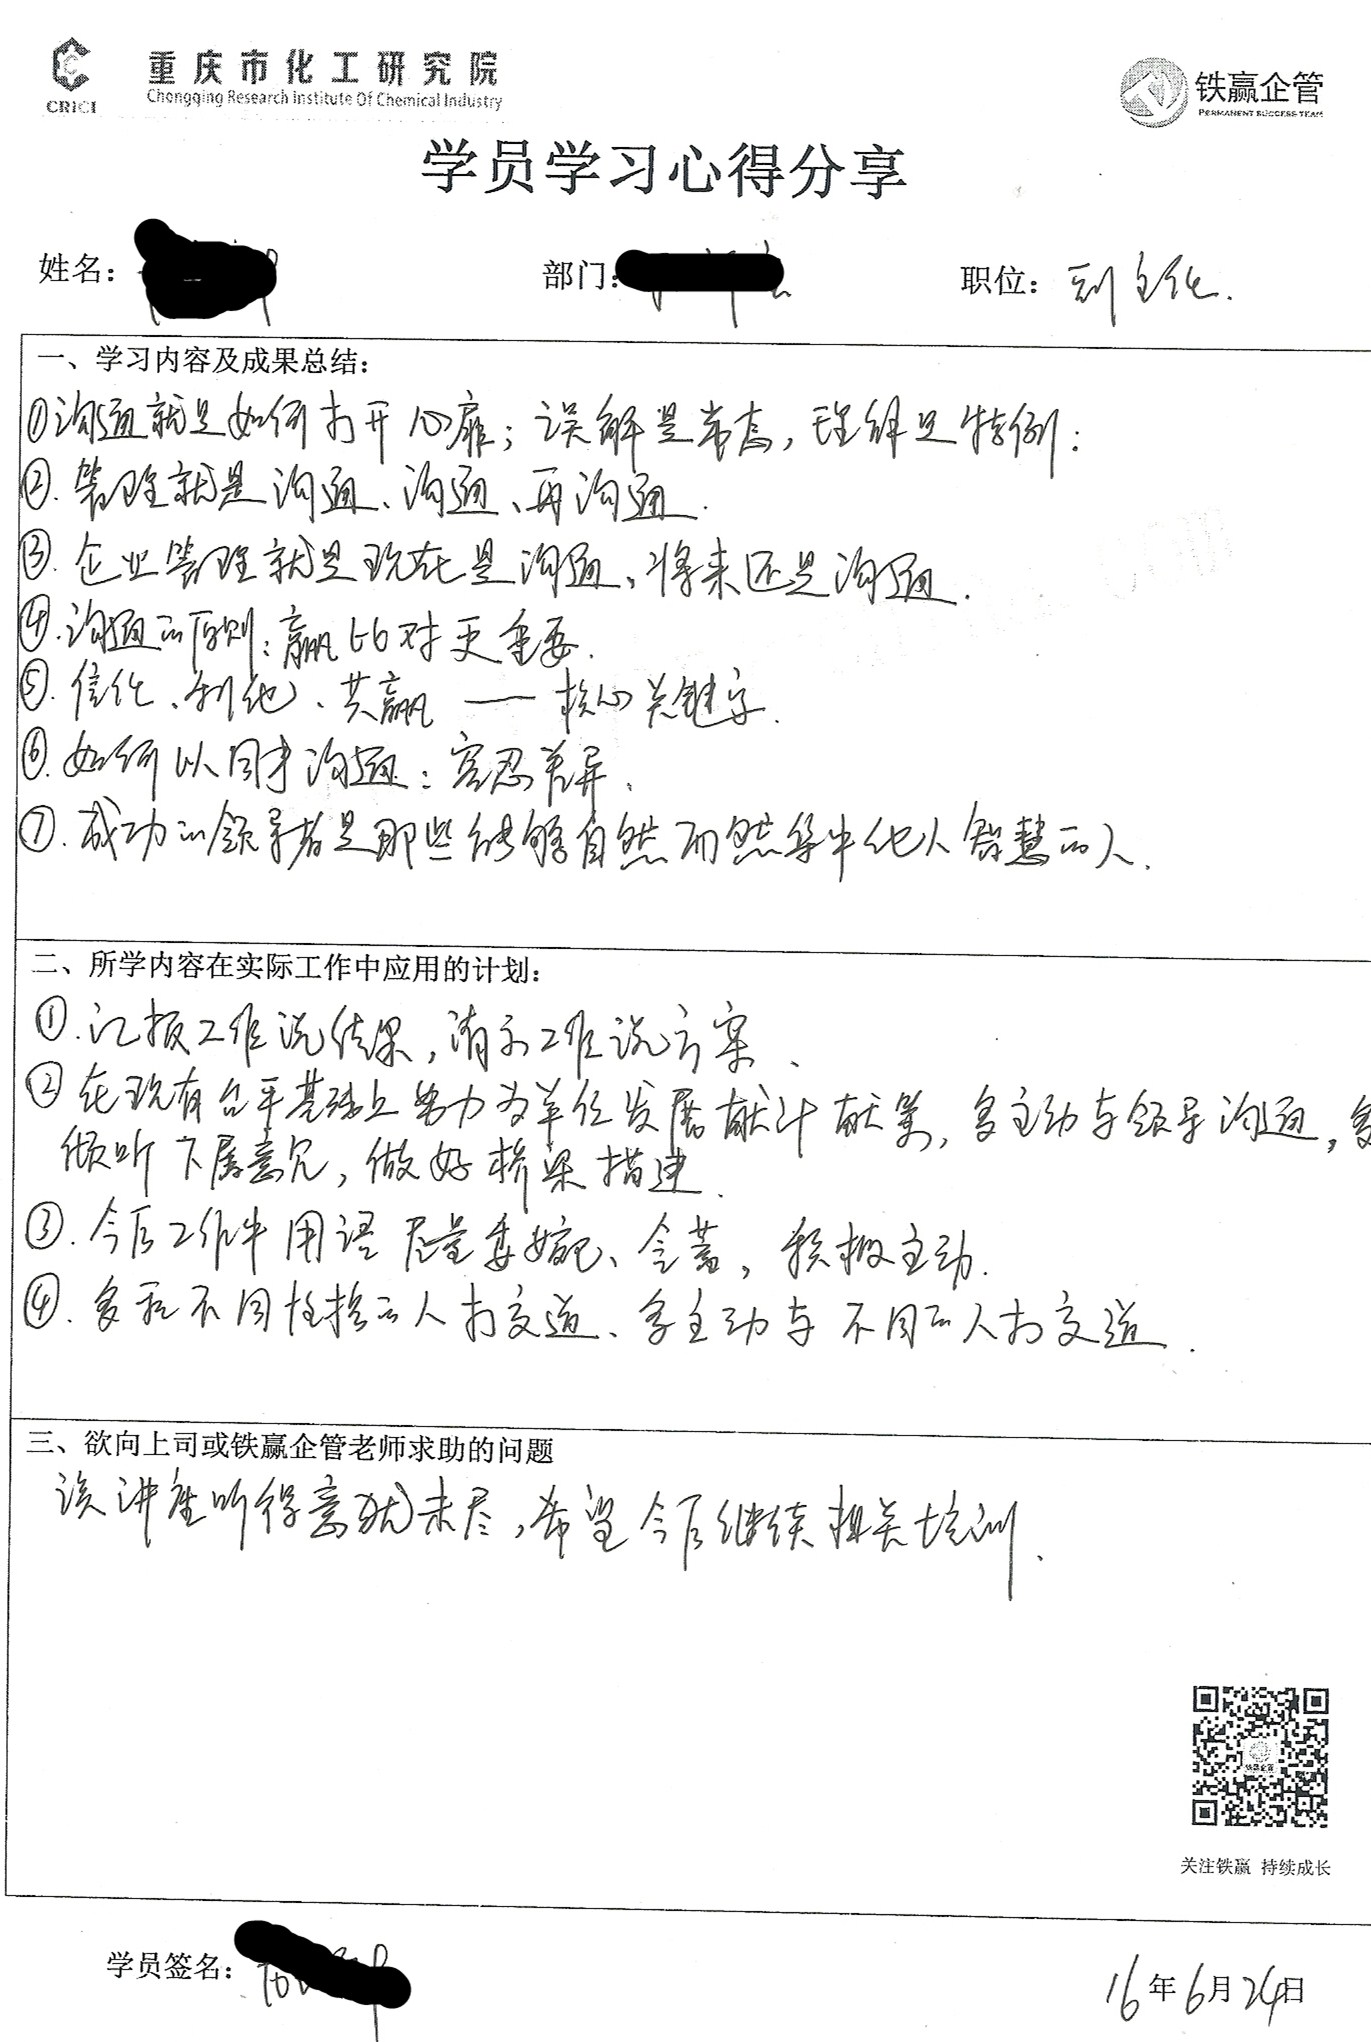 CRICI
重庆市化工研究院
Chongqing Research Institute Of Chemical Industry
铁赢企管
PERMANENT SUCCESS TEAM
学员学习心得分享
姓名： 部门： 职位：副主任.
一、学习内容及成果总结：
①沟通就是如何打开心扉；误解是常态，理解是特例：
②.管理就是沟通、沟通、再沟通.
③.企业管理就是现在是沟通、将来还是沟通.
④.沟通的原则：赢比对更重要.
⑤.信任、利他、共赢——核心关键字.
⑥.如何以同事沟通：容忍差异.
⑦.成功的领导者是那些能够自然而然集中他人智慧的人.
二、所学内容在实际工作中应用的计划：
①.汇报工作说结果，请示工作说方案、
②在现有台平基础上努力为单位发展献计献策，多主动与领导沟通，多
倾听下属意见，做好桥梁搭建.
③.今后工作中用语尽量委婉、含蓄，积极主动.
④.多和不同性格的人打交道、多主动与不同的人打交道.
三、欲向上司或铁赢企管老师求助的问题
该讲座听得意犹未尽，希望今后继续相关培训.
铁赢企管
关注铁赢 持续成长
学员签名：
16年6月24日